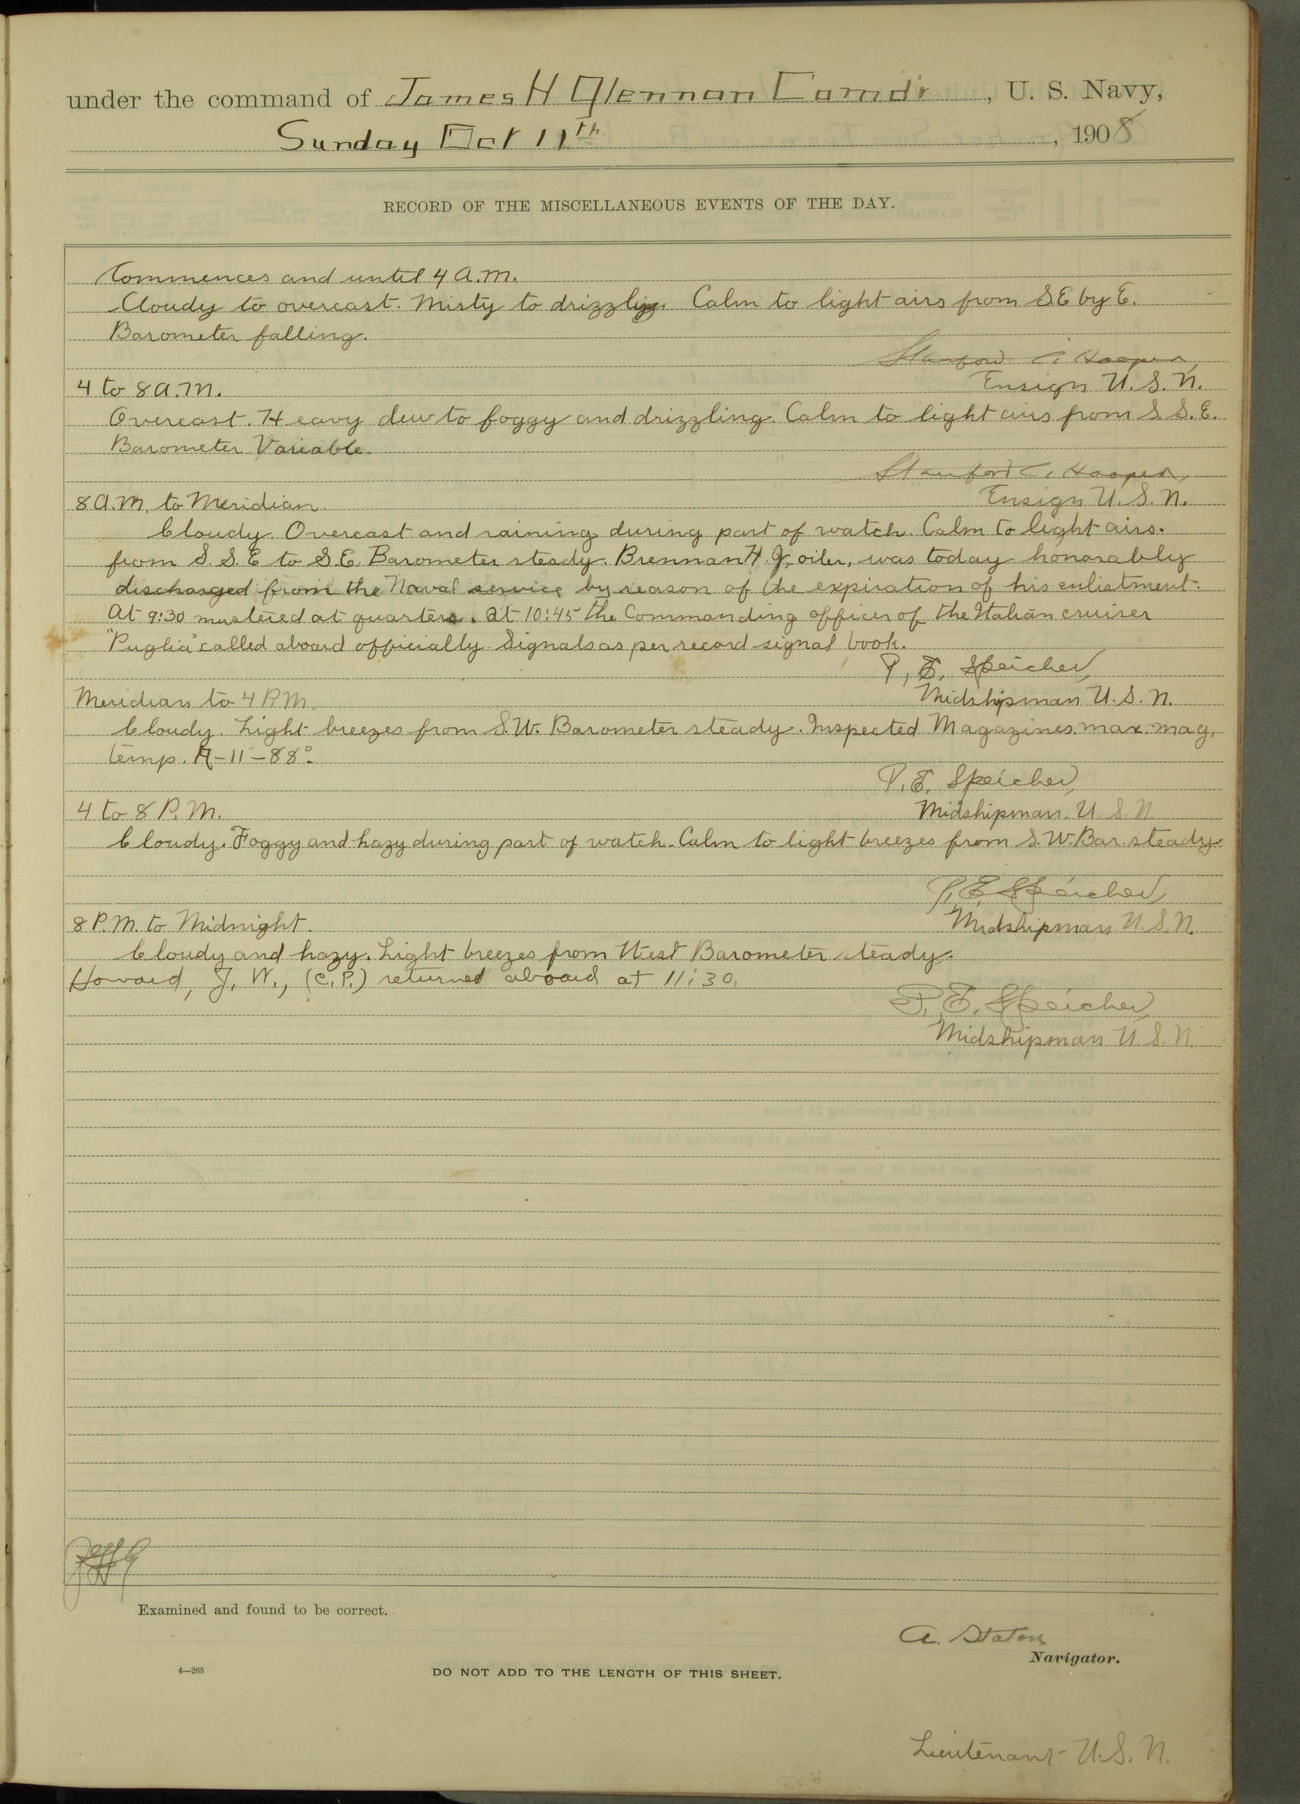 under the command of James H Glennan Comdr, U. S. Navy,
Sunday Oct 11th, 1908
RECORD OF THE MISCELLANEOUS EVENTS OF THE DAY.
Commences and until 4 A.M.
Cloudy to overcast. Misty to drizzly. Calm to light airs from SE by E.
Barometer falling.
Stanford C. Hooper,
4 to 8 A.M.
Ensign U.S.N.
Overcast. Heavy dew to foggy and drizzling. Calm to light airs from S.S.E.
Barometer Variable.
Stanford C. Hooper,
8 A.M. to Meridian.
Ensign U.S.N.
Cloudy. Overcast and raining during part of watch. Calm to light airs.
from S.S.E to S.E. Barometer steady. Brennan H. J, oiler, was today honorably
discharged from the Naval service by reason of the expiration of his enlistment.
At 9:30 mustered at quarters. At 10:45 the Commanding officer of the Italian cruiser
"Puglia" called aboard officially. Signals as per record signal book.
P. E. Speicher,
Meridian to 4 P.M.
Midshipman U.S.N.
Cloudy. Light breezes from S.W. Barometer steady. Inspected Magazines. max. mag,
temp. A-11-88°.
P. E. Speicher,
4 to 8 P.M.
Midshipman U S N
Cloudy. Foggy and hazy during part of watch. Calm to light breezes from S.W. Bar. steady
P. E. Speicher,
8 P.M. to Midnight.
Midshipman U.S.N.
Cloudy and hazy. Light breezes from West Barometer steady.
Howard, J. W., (C.P.) returned aboard at 11:30.
P. E. Speicher,
Midshipman U.S.N.
Examined and found to be correct.
A. Staton
Navigator.
4—265
DO NOT ADD TO THE LENGTH OF THIS SHEET.
Lieutenant U.S.N.